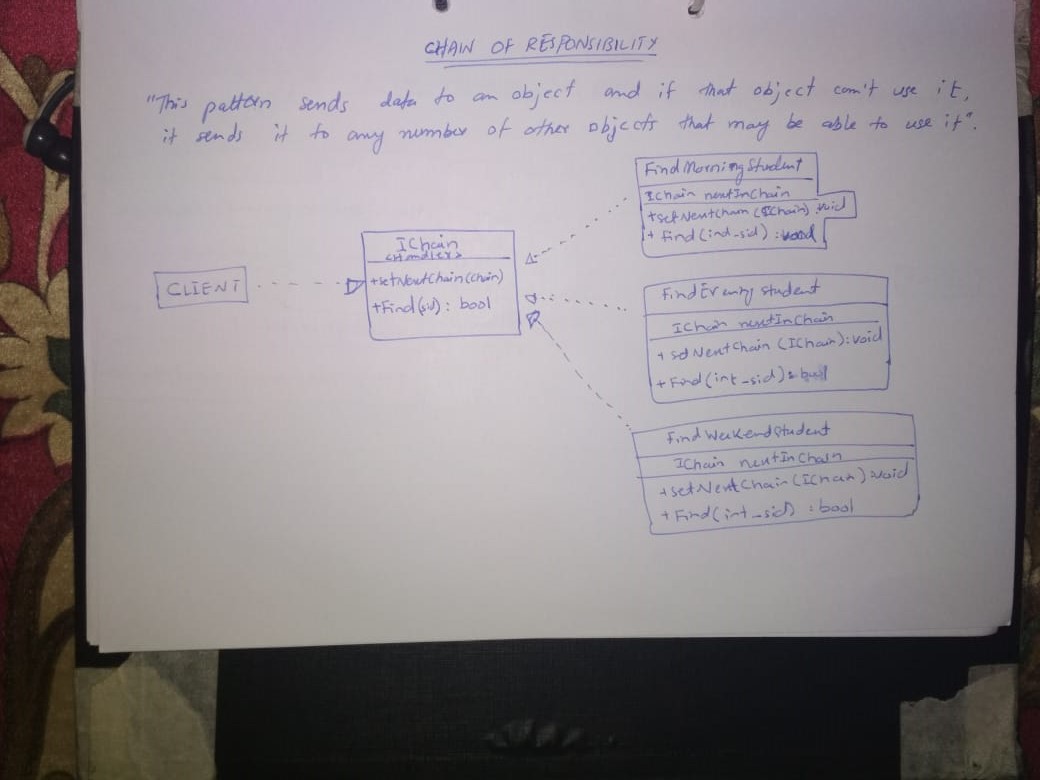 CHAIN OF RESPONSIBILITY
"This pattern sends data to an object and if that object can't use it,
it sends it to any number of other objects that may be able to use it".
FindMorningStudent
IChain nextInChain
+setNextChain (IChain) : void
+ Find (int_sid) :
IChain
<Handler>
+setNextChain (Chain)
+Find(sid) : bool
CLIENT
FindEvening Student
IChain nextInChain
+ setNextChain (IChain) : void
+ Find (int_sid) : bool
Find Weekend Student
IChain nextInChain
+setNextChain (IChain) : void
+ Find (int_sid) : bool